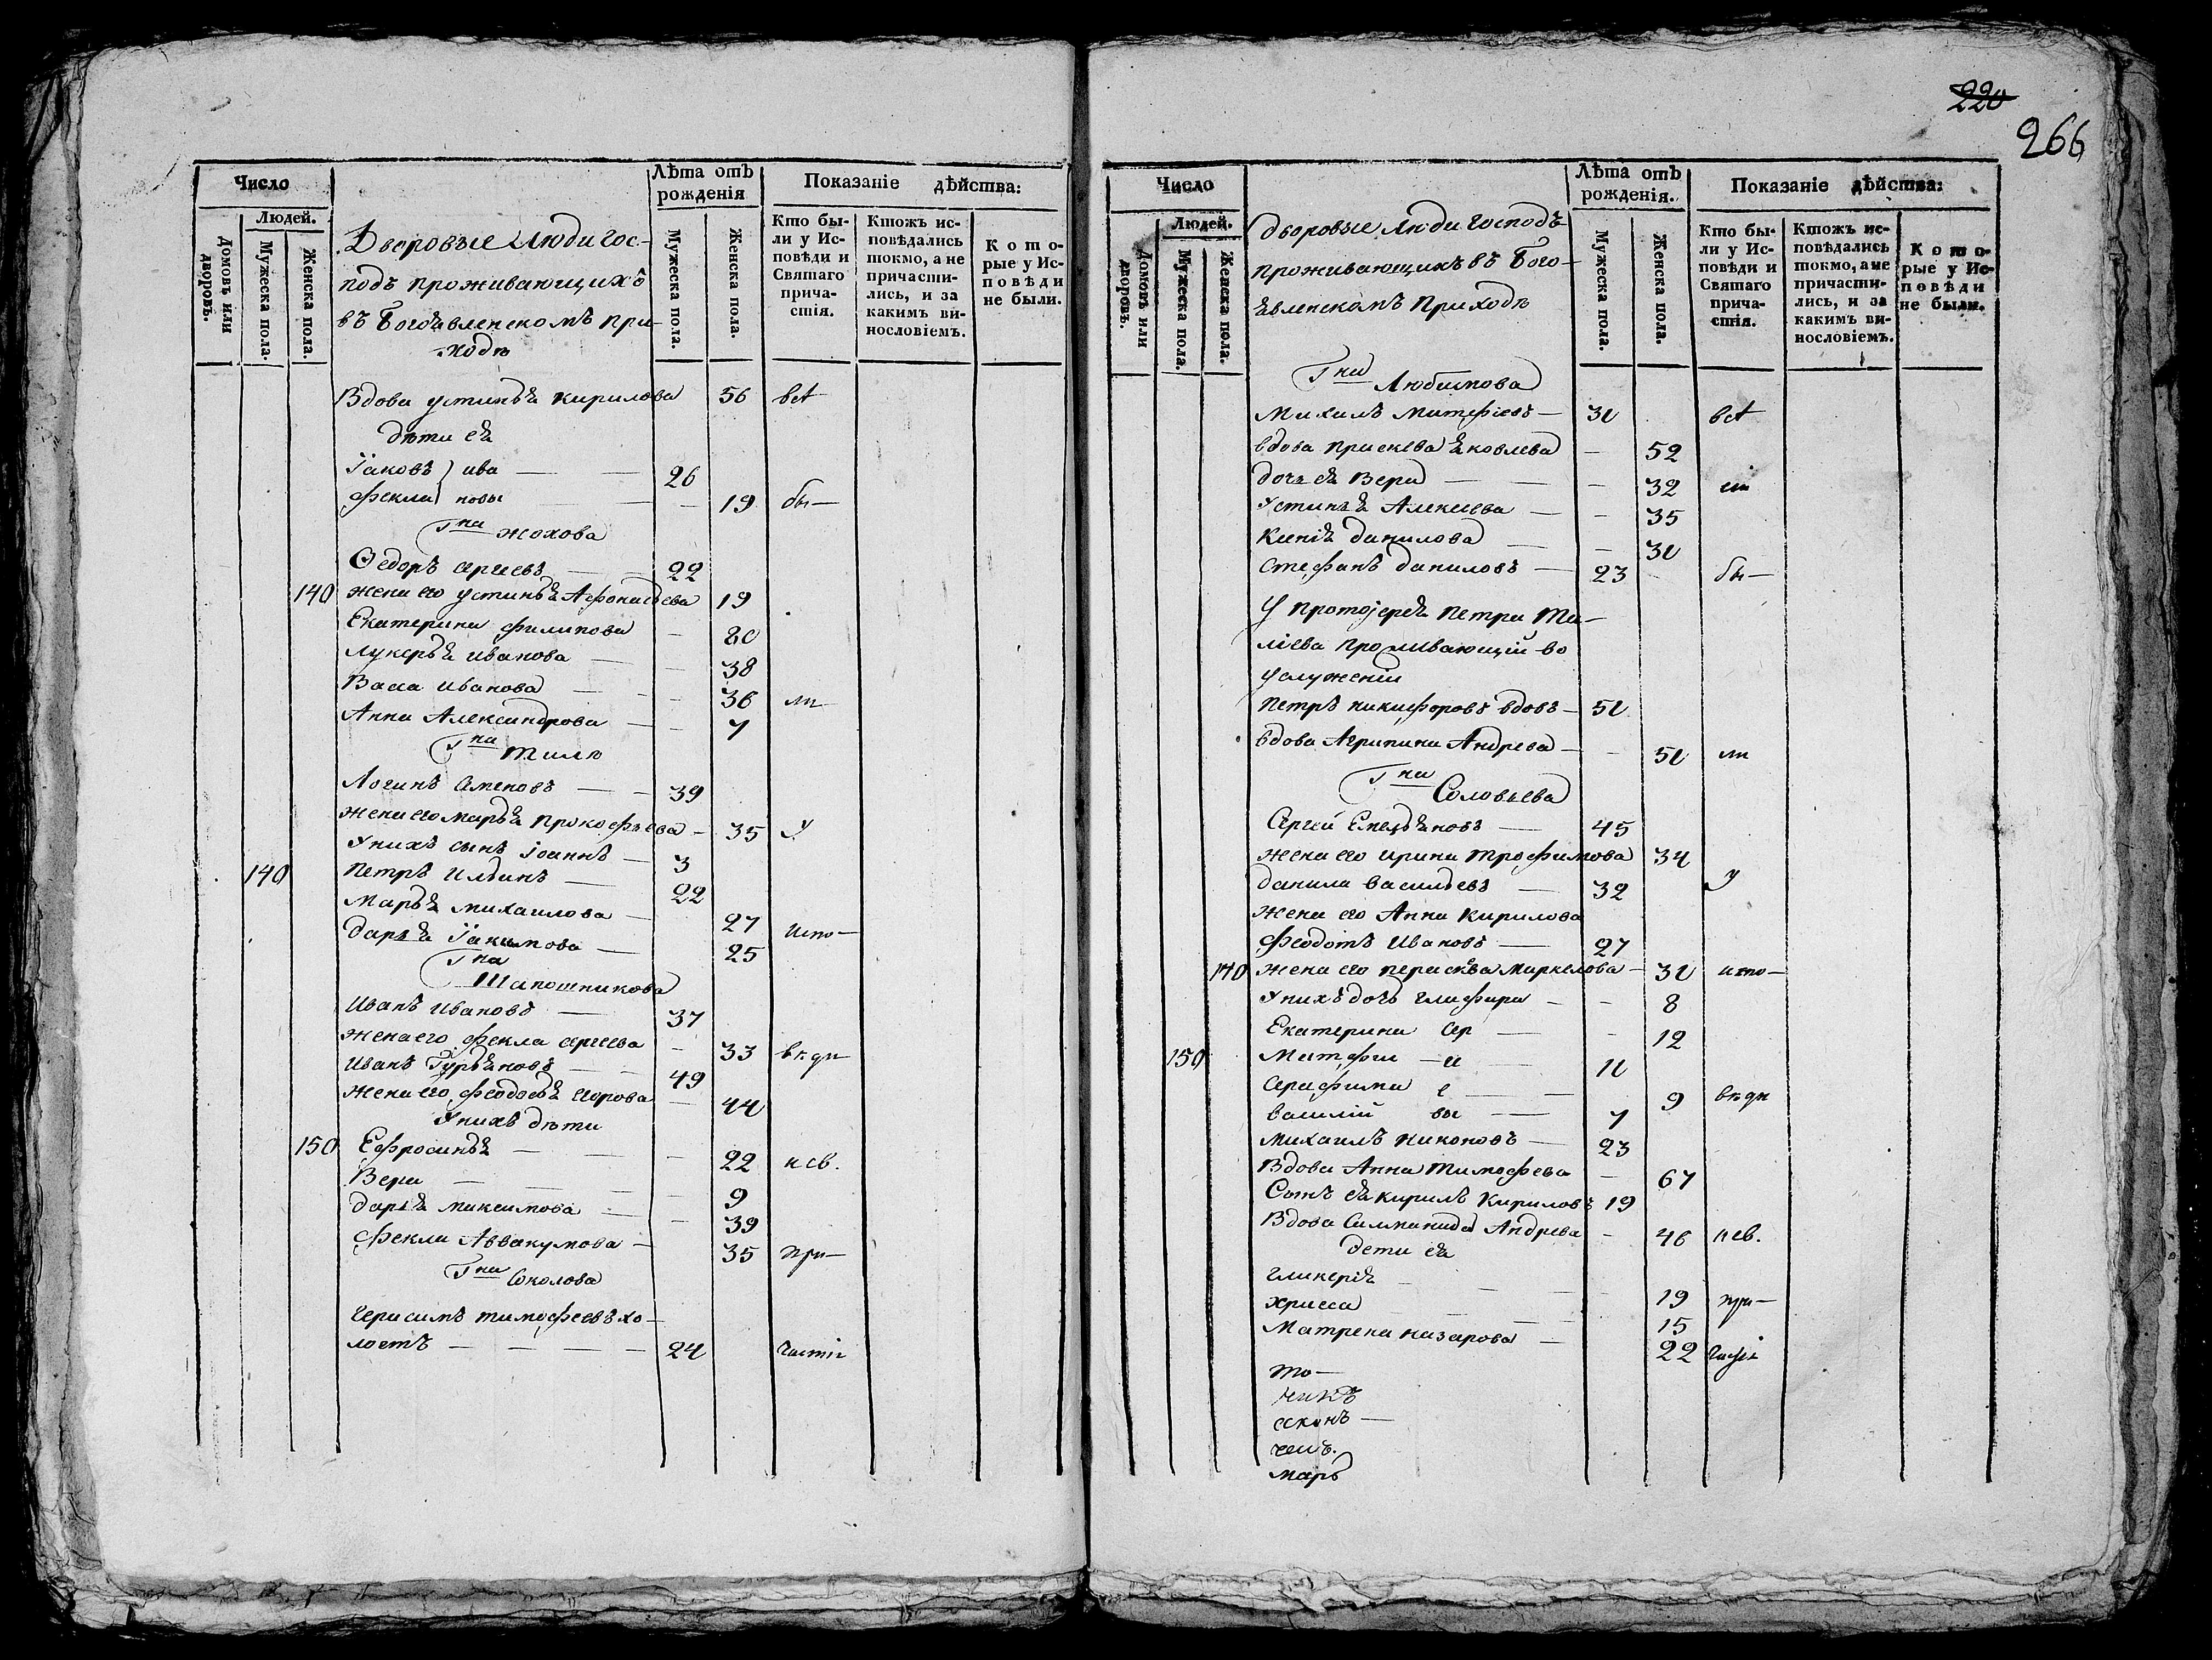 220
266
Число
Людей.
Домовъ или дворовъ.
Мужеска пола.
Женска пола.
Дворовые Люди гос-
подъ проживающихъ
въ Богоявленскомъ при-
ходѣ
Лѣта отъ рожденія
Мужеска пола.
Женска пола.
Показаніе дѣйства:
Кто бы-
ли у Ис-
повѣди и
Святаго
прича-
стія.
Ктожъ ис-
повѣдались
токмо, а не
причасти-
лись, и за
какимъ ви-
нословіемъ.
Кото-
рые у Ис-
повѣди
не были.
Вдова устинья Кирилова 56 всѣ
дѣти ея
Іаковъ } ива — — 26
Фекла } новы — — 19 бы—
Гна Жохова
Ѳедоръ Сргиевъ — 22
140 жена его устинья Афонасьева 19
Екатерина Филипова — 20
Лукерья Иванова — 38
Васса Иванова — 36 ли
Анна Александрова — 7
Гна Тилло
Логинъ Семеновъ — 39
жена его марья Прокофьева — 35 у
У нихъ сынъ Іоаннъ — 3
140 Петръ Ильинъ — 22
Марья Михаилова — 27 испо—
Дарья Іакимова — 25
Гна
Шапошникова
Иванъ Ивановъ — 37
жена его Фекла сергеева — 33 вѣди
Иванъ Гурьяновъ — 49
жена его Феодосья егорова — 44
У нихъ дѣти
150 Ефросинья — 22 и св.
Вера — 9
Дарья Максимова — 39
Фекла Аввакумова — 35 при—
Гна Соколова
Герасимъ тимофеевъ хо-
лостъ — — — — 24 частіе
Число
Людей.
Домовъ или дворовъ.
Мужеска пола.
Женска пола.
Дворовые Люди Господъ
проживающихъ въ Бого-
явленскомъ Приходѣ
Лѣта отъ рожденія.
Мужеска пола.
Женска пола.
Показаніе дѣйства:
Кто бы-
ли у Ис-
повѣди и
Святаго
прича-
стія.
Ктожъ ис-
повѣдались
токмо, а не
причасти-
лись, и за
какимъ ви-
нословіемъ.
Кото-
рые у Ис-
повѣди
не были.
Гна Любимова
Михаилъ Матфіевъ — 30 всѣ
вдова Праскева Яковлева — 52
дочь ея Вера — — 32
Устинья Алексиева — — 35
Ксенія Данилова — — 30
Стефанъ Даниловъ — 23 бы—
У протоіерея петра Ти-
лиева проживающій во
услуженіи
Петръ никифоровъ вдовъ — 50
вдова Агрипина Андрева — 50 ли
Гна Соловьева
Сергей Емельяновъ — 45
жена его ирина трофимова 34
данила васильевъ — 32 у
жена его Анна Кирилова
Феодотъ Ивановъ — 27
170 жена его перасковья маркелова — 30 испо—
У нихъ дочь глафира — — 8
Екатерина Сер — — 12
150 Матфей — и — 10
Серафима е — — 9 вѣди
василій вы — 7
Михаилъ Никоновъ — 23
Вдова Анна Тимофева — 67
Сынъ ея кирилъ Кириловъ 19
Вдова Саломанида Андрева — 46 и св.
дети ея
Гликерія — — 19 при—
— 15
Матрена назарова — 22
то—
никъ
марь